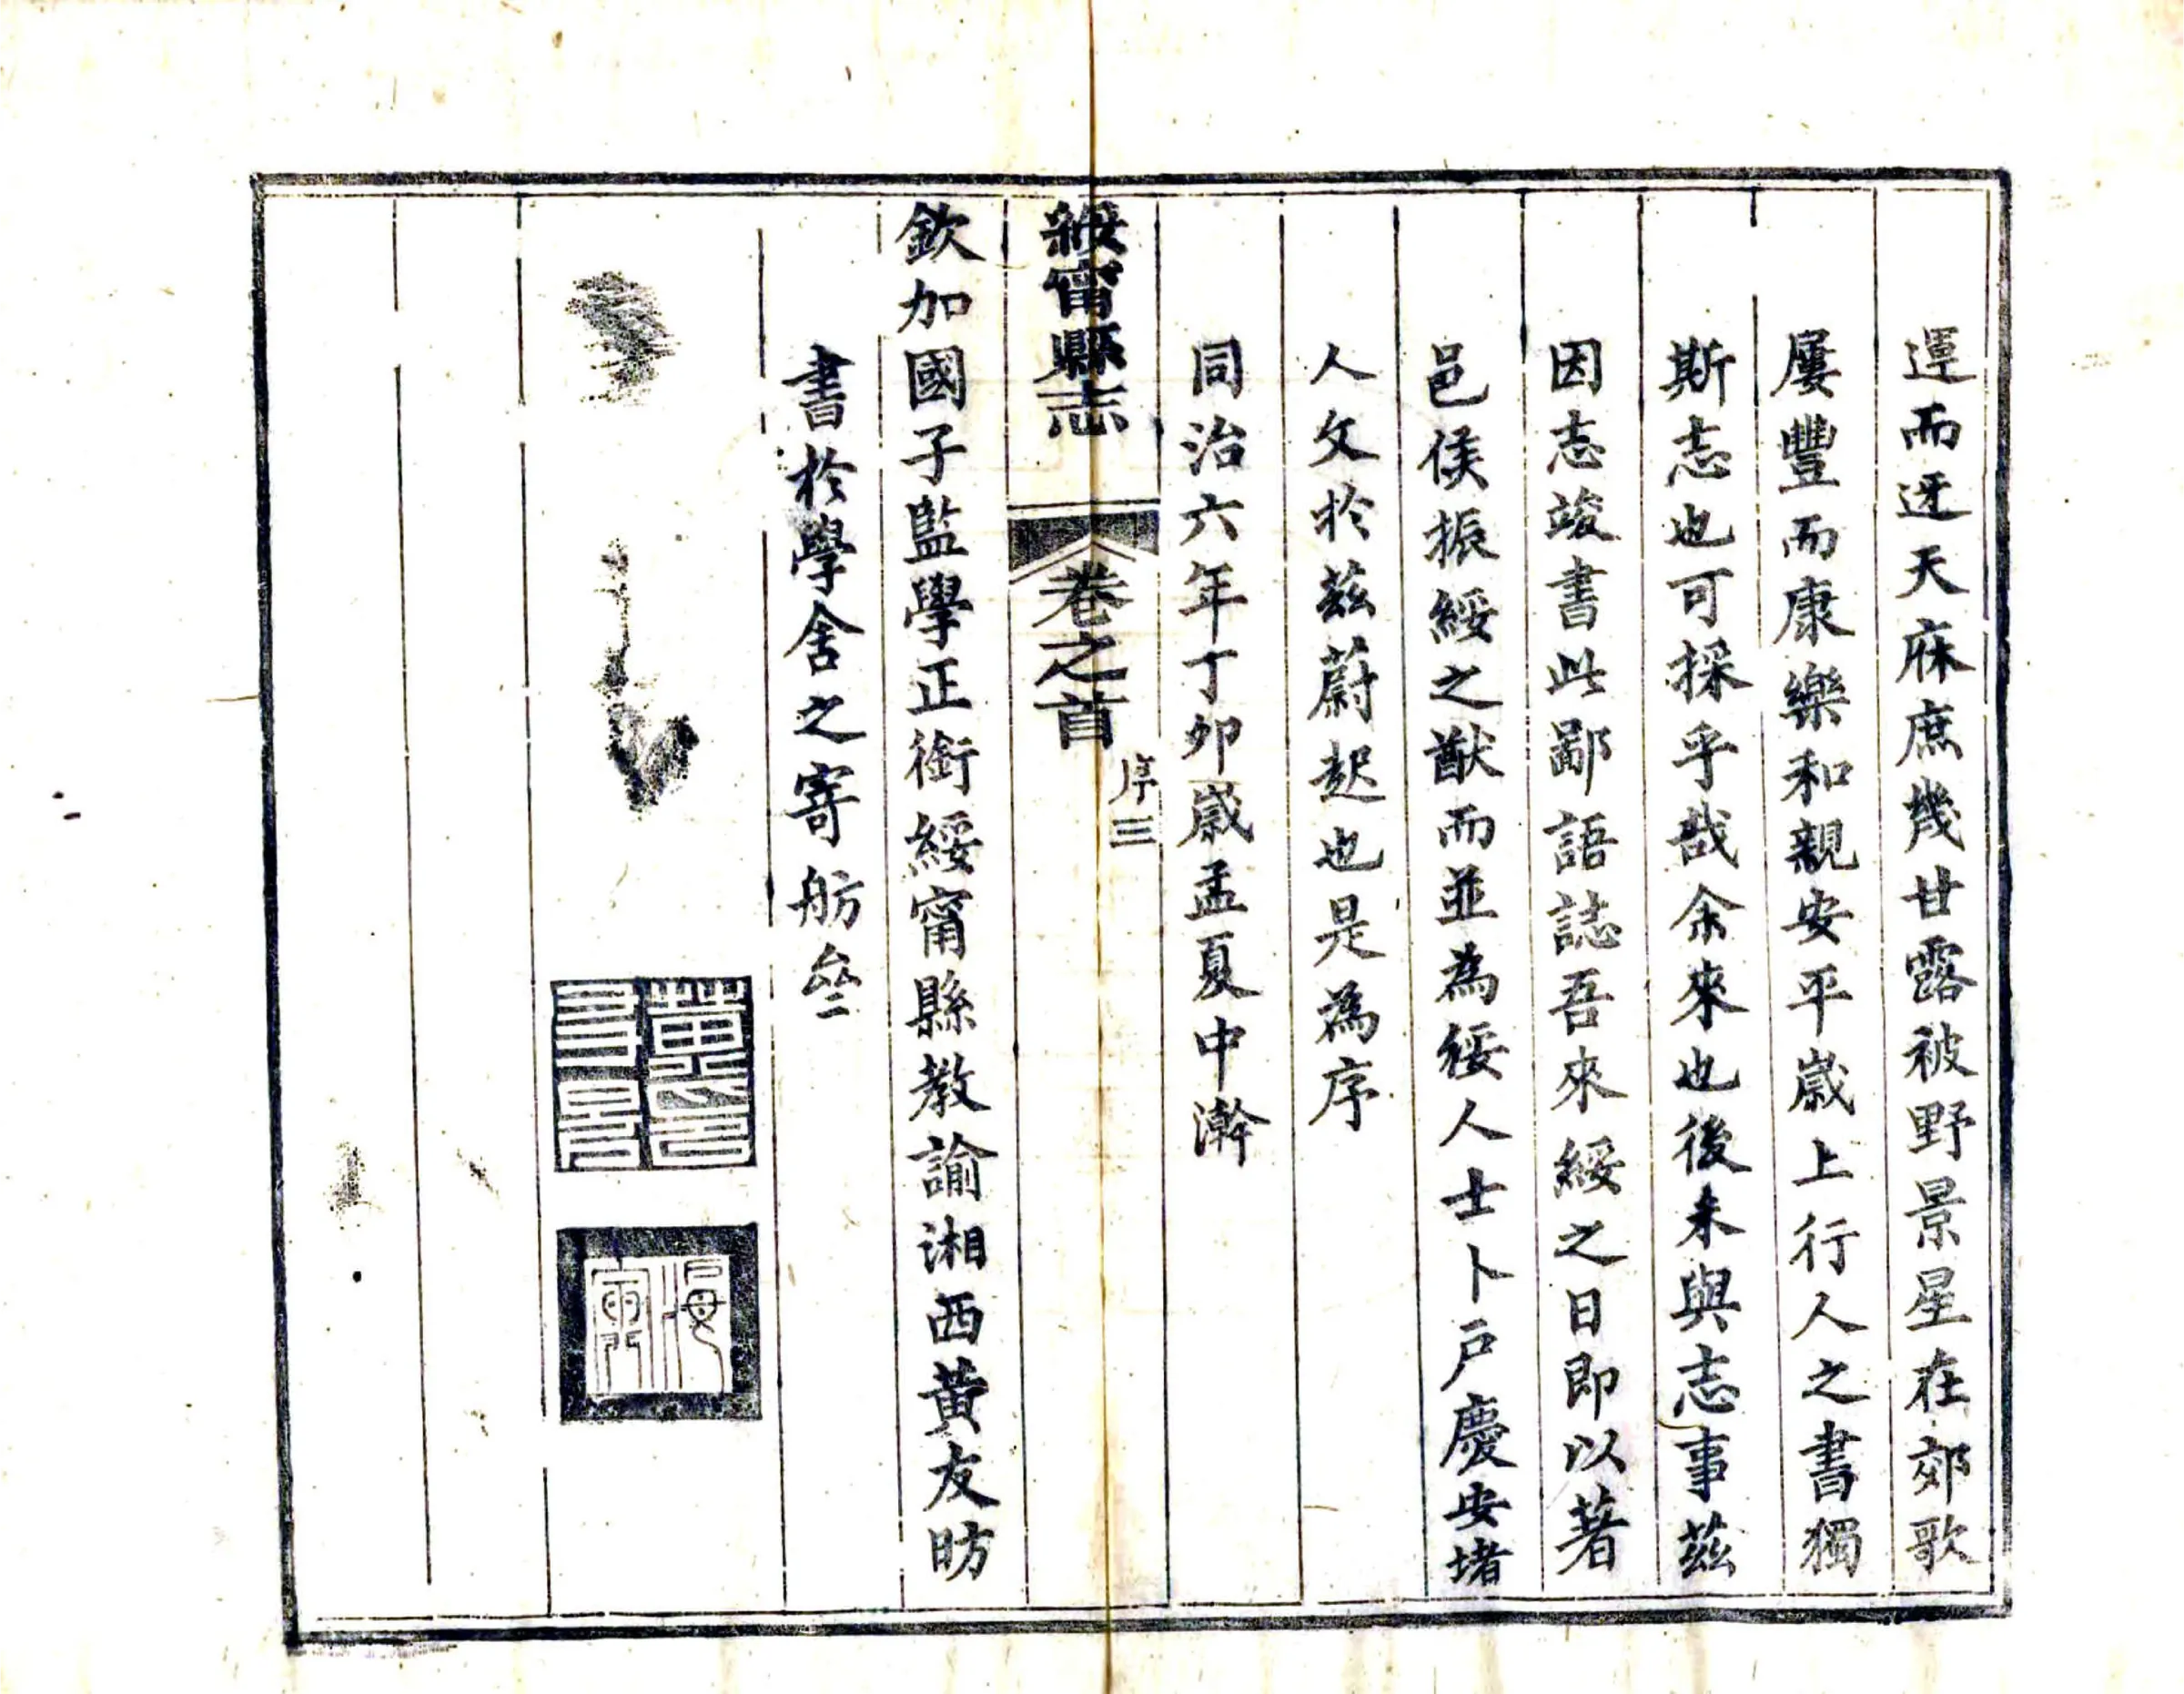 運而迓天庥庶幾甘露被野景星在郊歌
屢豐而康樂和親安平歲上行人之書獨
斯志也可採乎哉余來也後未與志事茲
因志竣書此鄙語誌吾來綏之日即以著
邑侯振綏之猷而並為綏人士卜戶慶安堵
人文於茲蔚起也是為序
同治六年丁卯歲孟夏中澣
綏甯縣志
卷之首
序三
欽加國子監學正銜綏甯縣教諭湘西黃友昉
書於學舍之寄舫